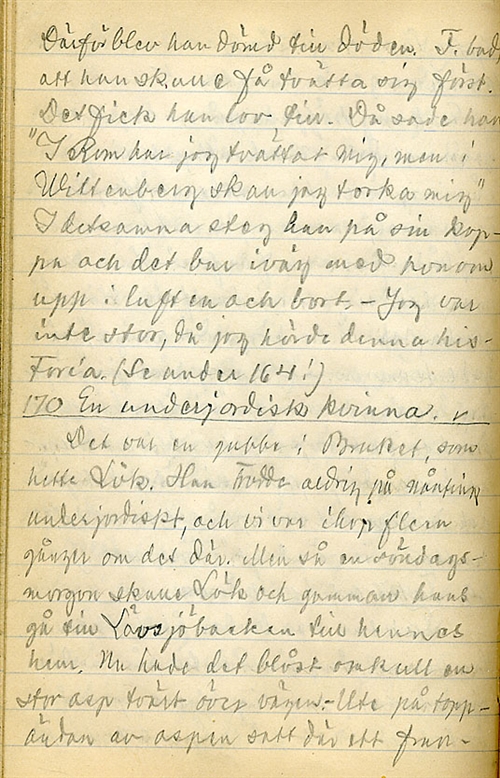 Därför blev han dömd till döden. F. bad
att han skulle få tvätta sig först.
Det fick han lov till. Då sade han
"I Rom har jag tvättat mig, men i
Wittenberg skall jag torka mig"
I detsamma steg han på sin kop-
pa och det bar iväg med honom
upp i luften och bort. – Jag var
inte stor, då jag hörde denna his-
toria. (Se under 164!)
170 En underjordisk kvinna. v
Det var en gubbe i Bruket, som
hette Lök. Han trodde aldrig på nånting
underjordiskt, och vi var ihop flera
gånger om det där. Men så en söndags-
morgon skulle Lök och gumman hans
gå till Lövsjöbacken till hennes
hem. Nu hade det blåst omkull en
stor asp tvärt över vägen. – Ute på topp-
ändan av aspen satt där ett frun-